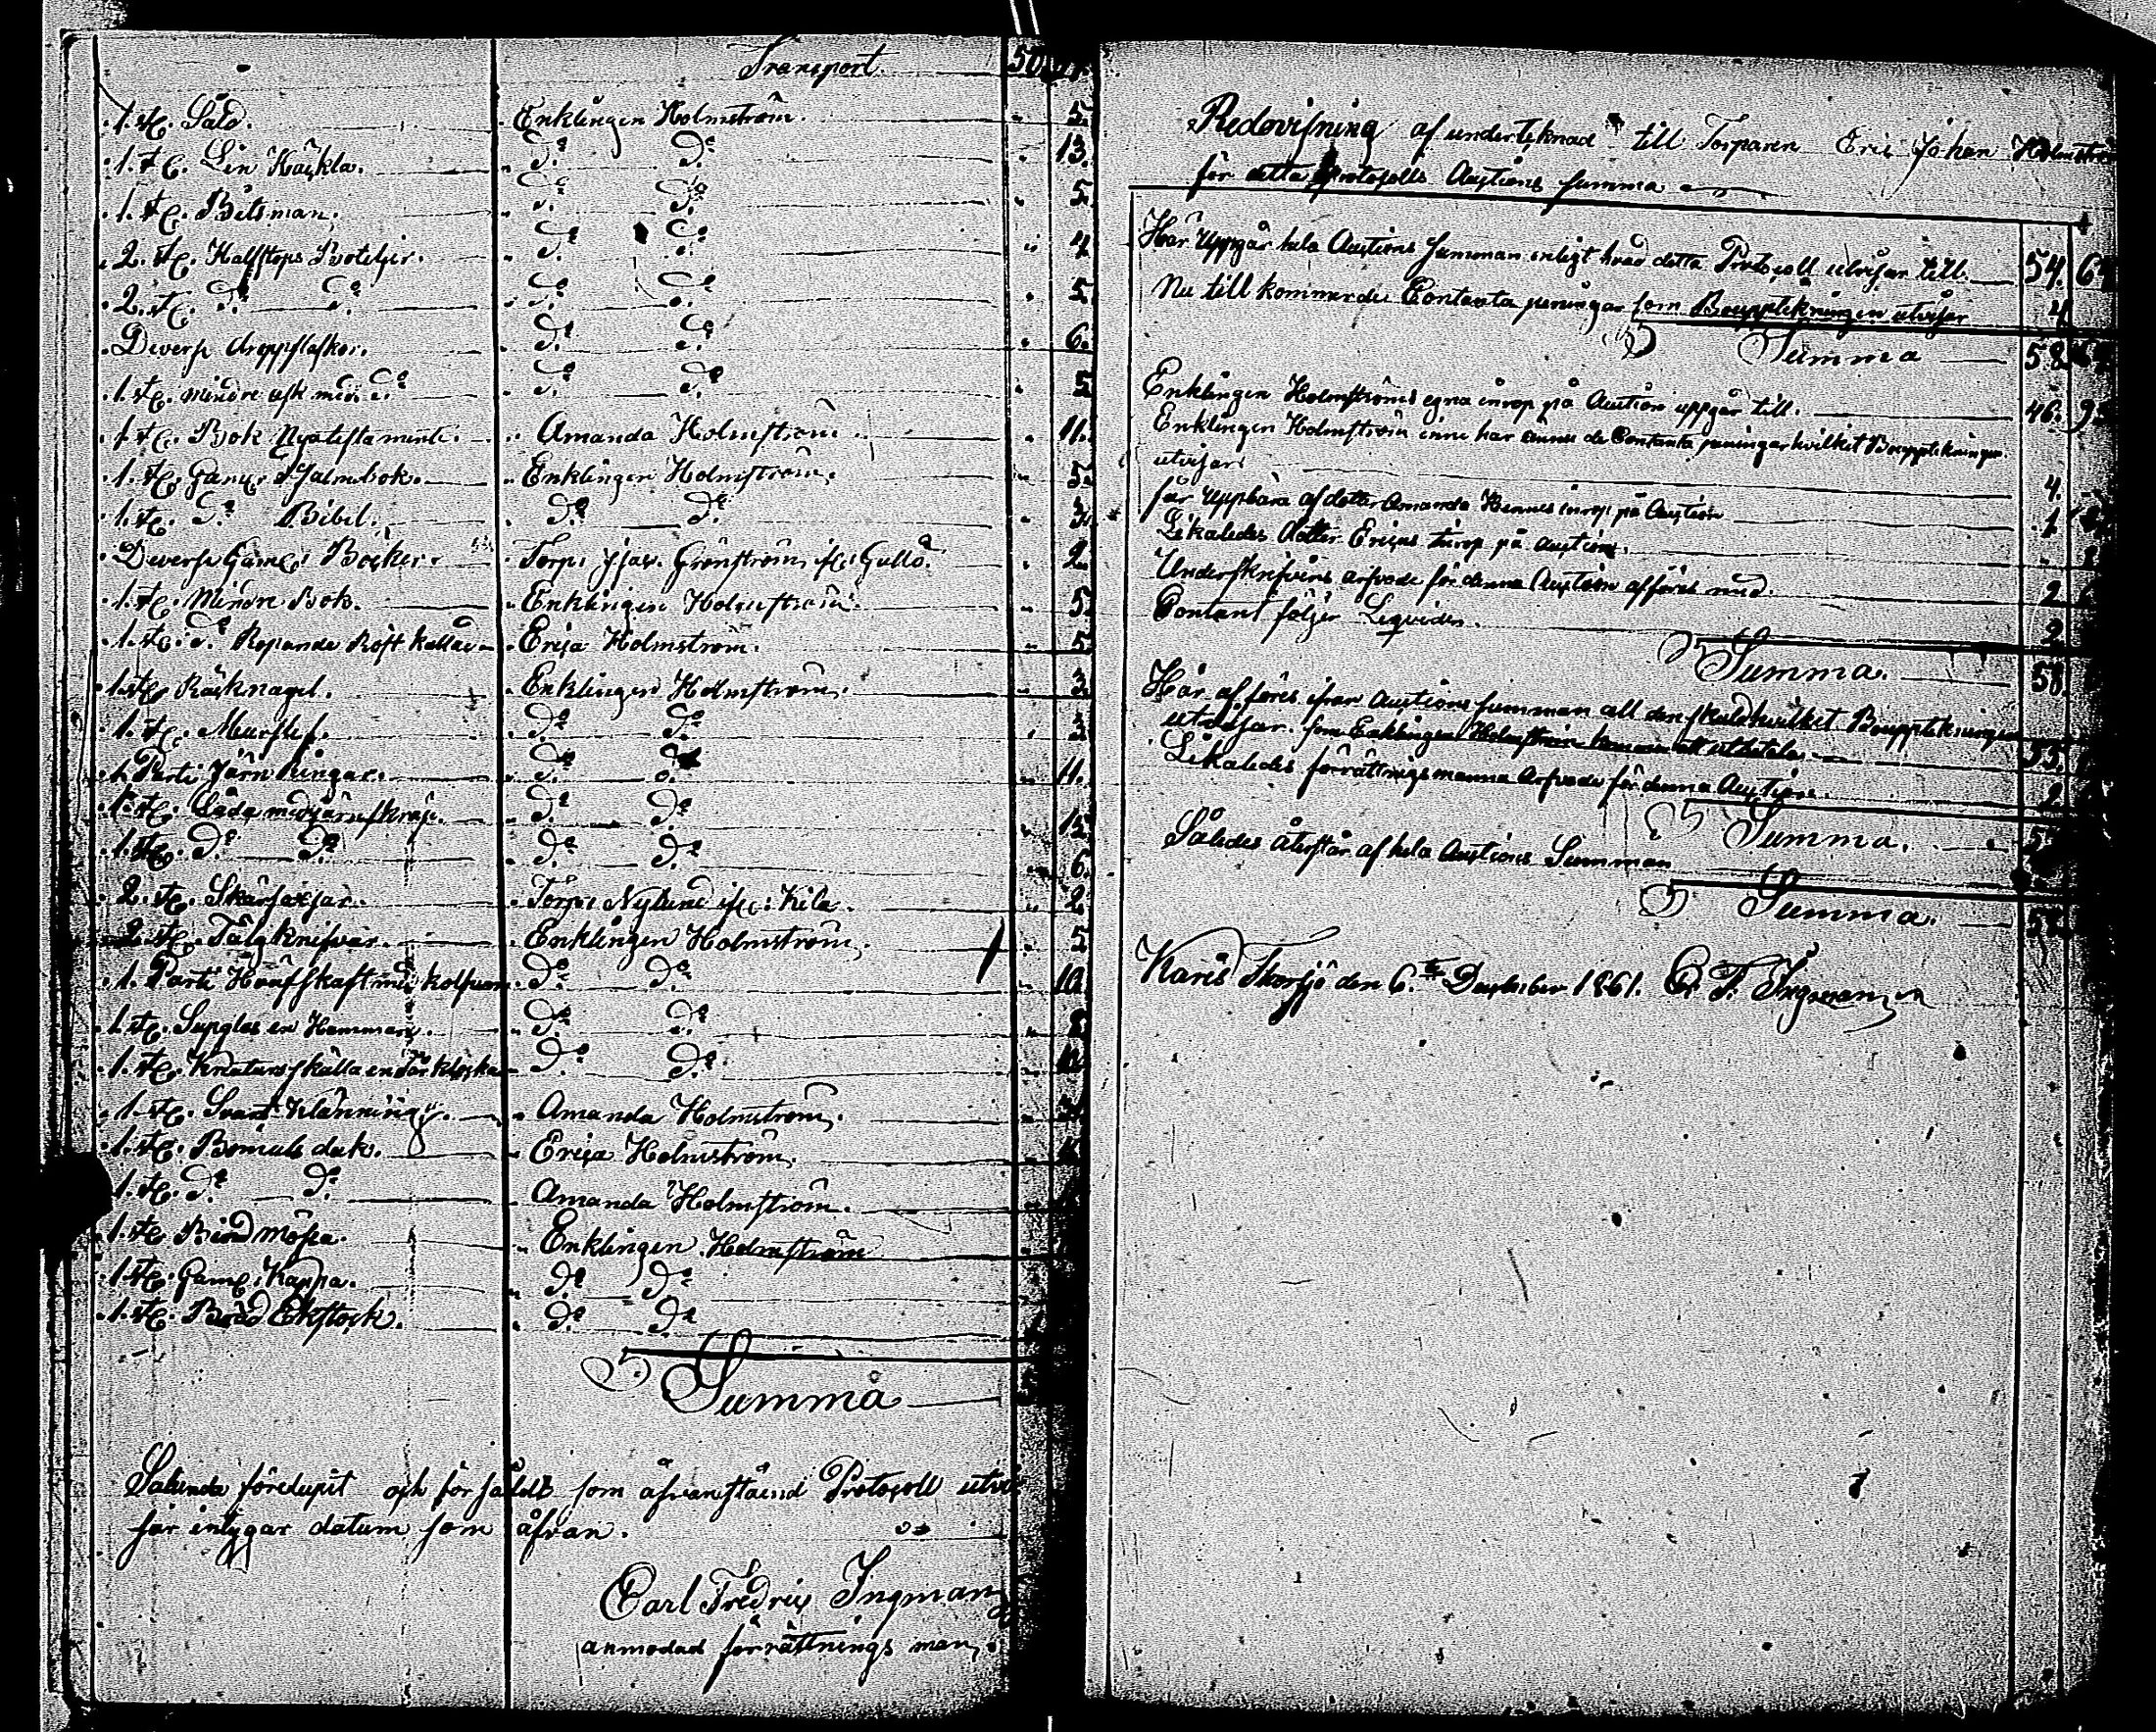 Transport. 50
1. st. Såld. Enklingen Holmström. 5.
1. st. Lin Häckla. D:o D:o 13.
1. st. Betsman. D:o D:o 5.
2. st. Halfstops Boteljer. D:o D:o 4
2. st. D:o D:o D:o D:o 5.
Diverse droppflaskor. D:o D:o 6.
1. st. mindre ask med d:o D:o D:o 5
1 st. Bok Nyatestamente. Amanda Holmström. 11.
1. st. Gam: Psalmbok. Enklingen Holmström. 5.
1. st. D:o Bibel. D:o D:o 3.
Diverse Gaml: Böcker. Torp: Isax. Grönström, if: Gullö. 2.
1. st. Mindre Bok. Enklingen Holmström. 5.
1. st. d:o Ropande Röst kallad Erica Holmström. 5
1. st. Räcknagel. Enklingen Holmström. 3.
1. st. Murslef. D:o D:o 3
1. Parti Järn Ringar. D:o D:o 11.
1. st. Låda med järnskråp. D:o D:o 12
1. st. D:o D:o D:o D:o 6.
2. st. Skärsaxar. Torp: Nylund if: Kila. 2
2. st. Tälgknifvar. Enklingen Holmström. 5
1. Parti Hräfskaft med D:o D:o 10
1. st. Supglas en Hammare. D:o D:o
1. st. en D:o D:o
1. st. Svart Klänning. Amanda Holmström.
1. st. Bomuls duk. Erica Holmström.
1. st. D:o D:o Amanda Holmström.
1. st. Bind mössa. Enklingen Holmström
1. st. Gaml: Kappa. D:o D:o
1. st. Bräd Ekstock. D:o D:o
Summa
Salunda förelupit och försåldt som åfvanståend Protocoll utvi
sar intygar datum som åfvan.
Carl Fredric Ingman
anmodad förrättnings man,
Redovisning af undertecknad till Torparen Eric Johan Holmström
för detta Protocolls Auctions summa
Här Uppgår hela Auctions summan enligt hvad detta Protocoll utvisar till. 54. 6
Nu till kommer de Contanta peningar som Bouptekningen utvisar 4
Summa 58
Enklingen Holmströms egna inrop på Auction uppgår till. 46. 9
Enklingen Holmström inne har ännu de Contanta peningar hvilket Bouptekningen
utvisar 4.
får Uppbära af dotter Amanda Hennes inrop på Auction 1
Likaledes dotter Ericas Inrop på Auction.
Underskrifvens arfvode för denna Auction afföres med 2
Contant följer Liqviden. 2
Summa. 58.
Här afföres ifrån Auctions summan all den skuld hvilket Bouptekningen
utvisar. som Enklingen Holmström kommer att utbetala 55.
Likaledes förrättningsmanna Arfvode för denna Auction. 2
Summa. 5
Således återstår af hela Auctions Summan
Summa.
Karis Thorsjö den 6:te December 1861. C. F. Ingman